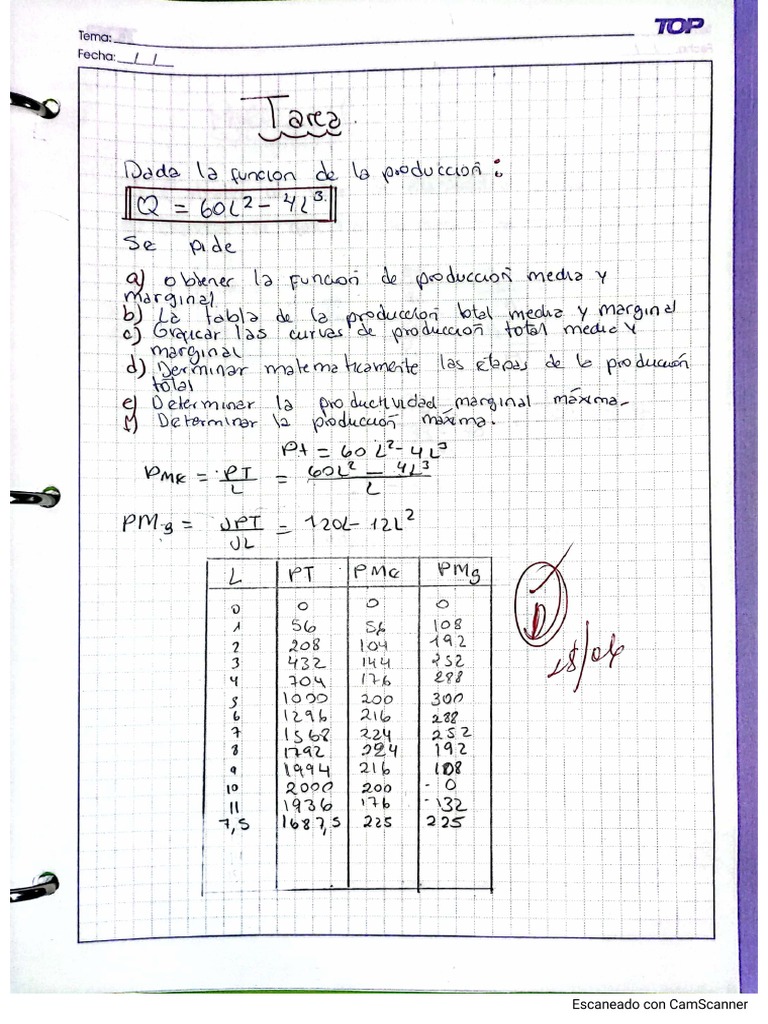 TOP
Tema:
Fecha: / /
Tarea.
Dada la funcion de la producción :
Q = 60L² - 4L³.
Se pide
a) obtener la función de producción media y
marginal.
b) La tabla de la producción total media y marginal
c) Graficar las curvas de producción total media y
marginal
d) Derminar matematicamente las etapas de la producción
total
e) Determinar la productividad marginal máxima.
f) Determinar la producción máxima.
Pt = 60L² - 4L³
PMe = PT/L = 60L² - 4L³/L
PMg = JPT/JL = 120L - 12L²
L PT PMe PMg
0 0 0 0
1 56 56 108
2 208 104 192
3 432 144 252
4 704 176 288
5 1000 200 300
6 1296 216 288
7 1568 224 252
8 1792 224 192
9 1994 216 108
10 2000 200 - 0
11 1936 176 -132
7,5 1687,5 225 225
28/04
Escaneado con CamScanner